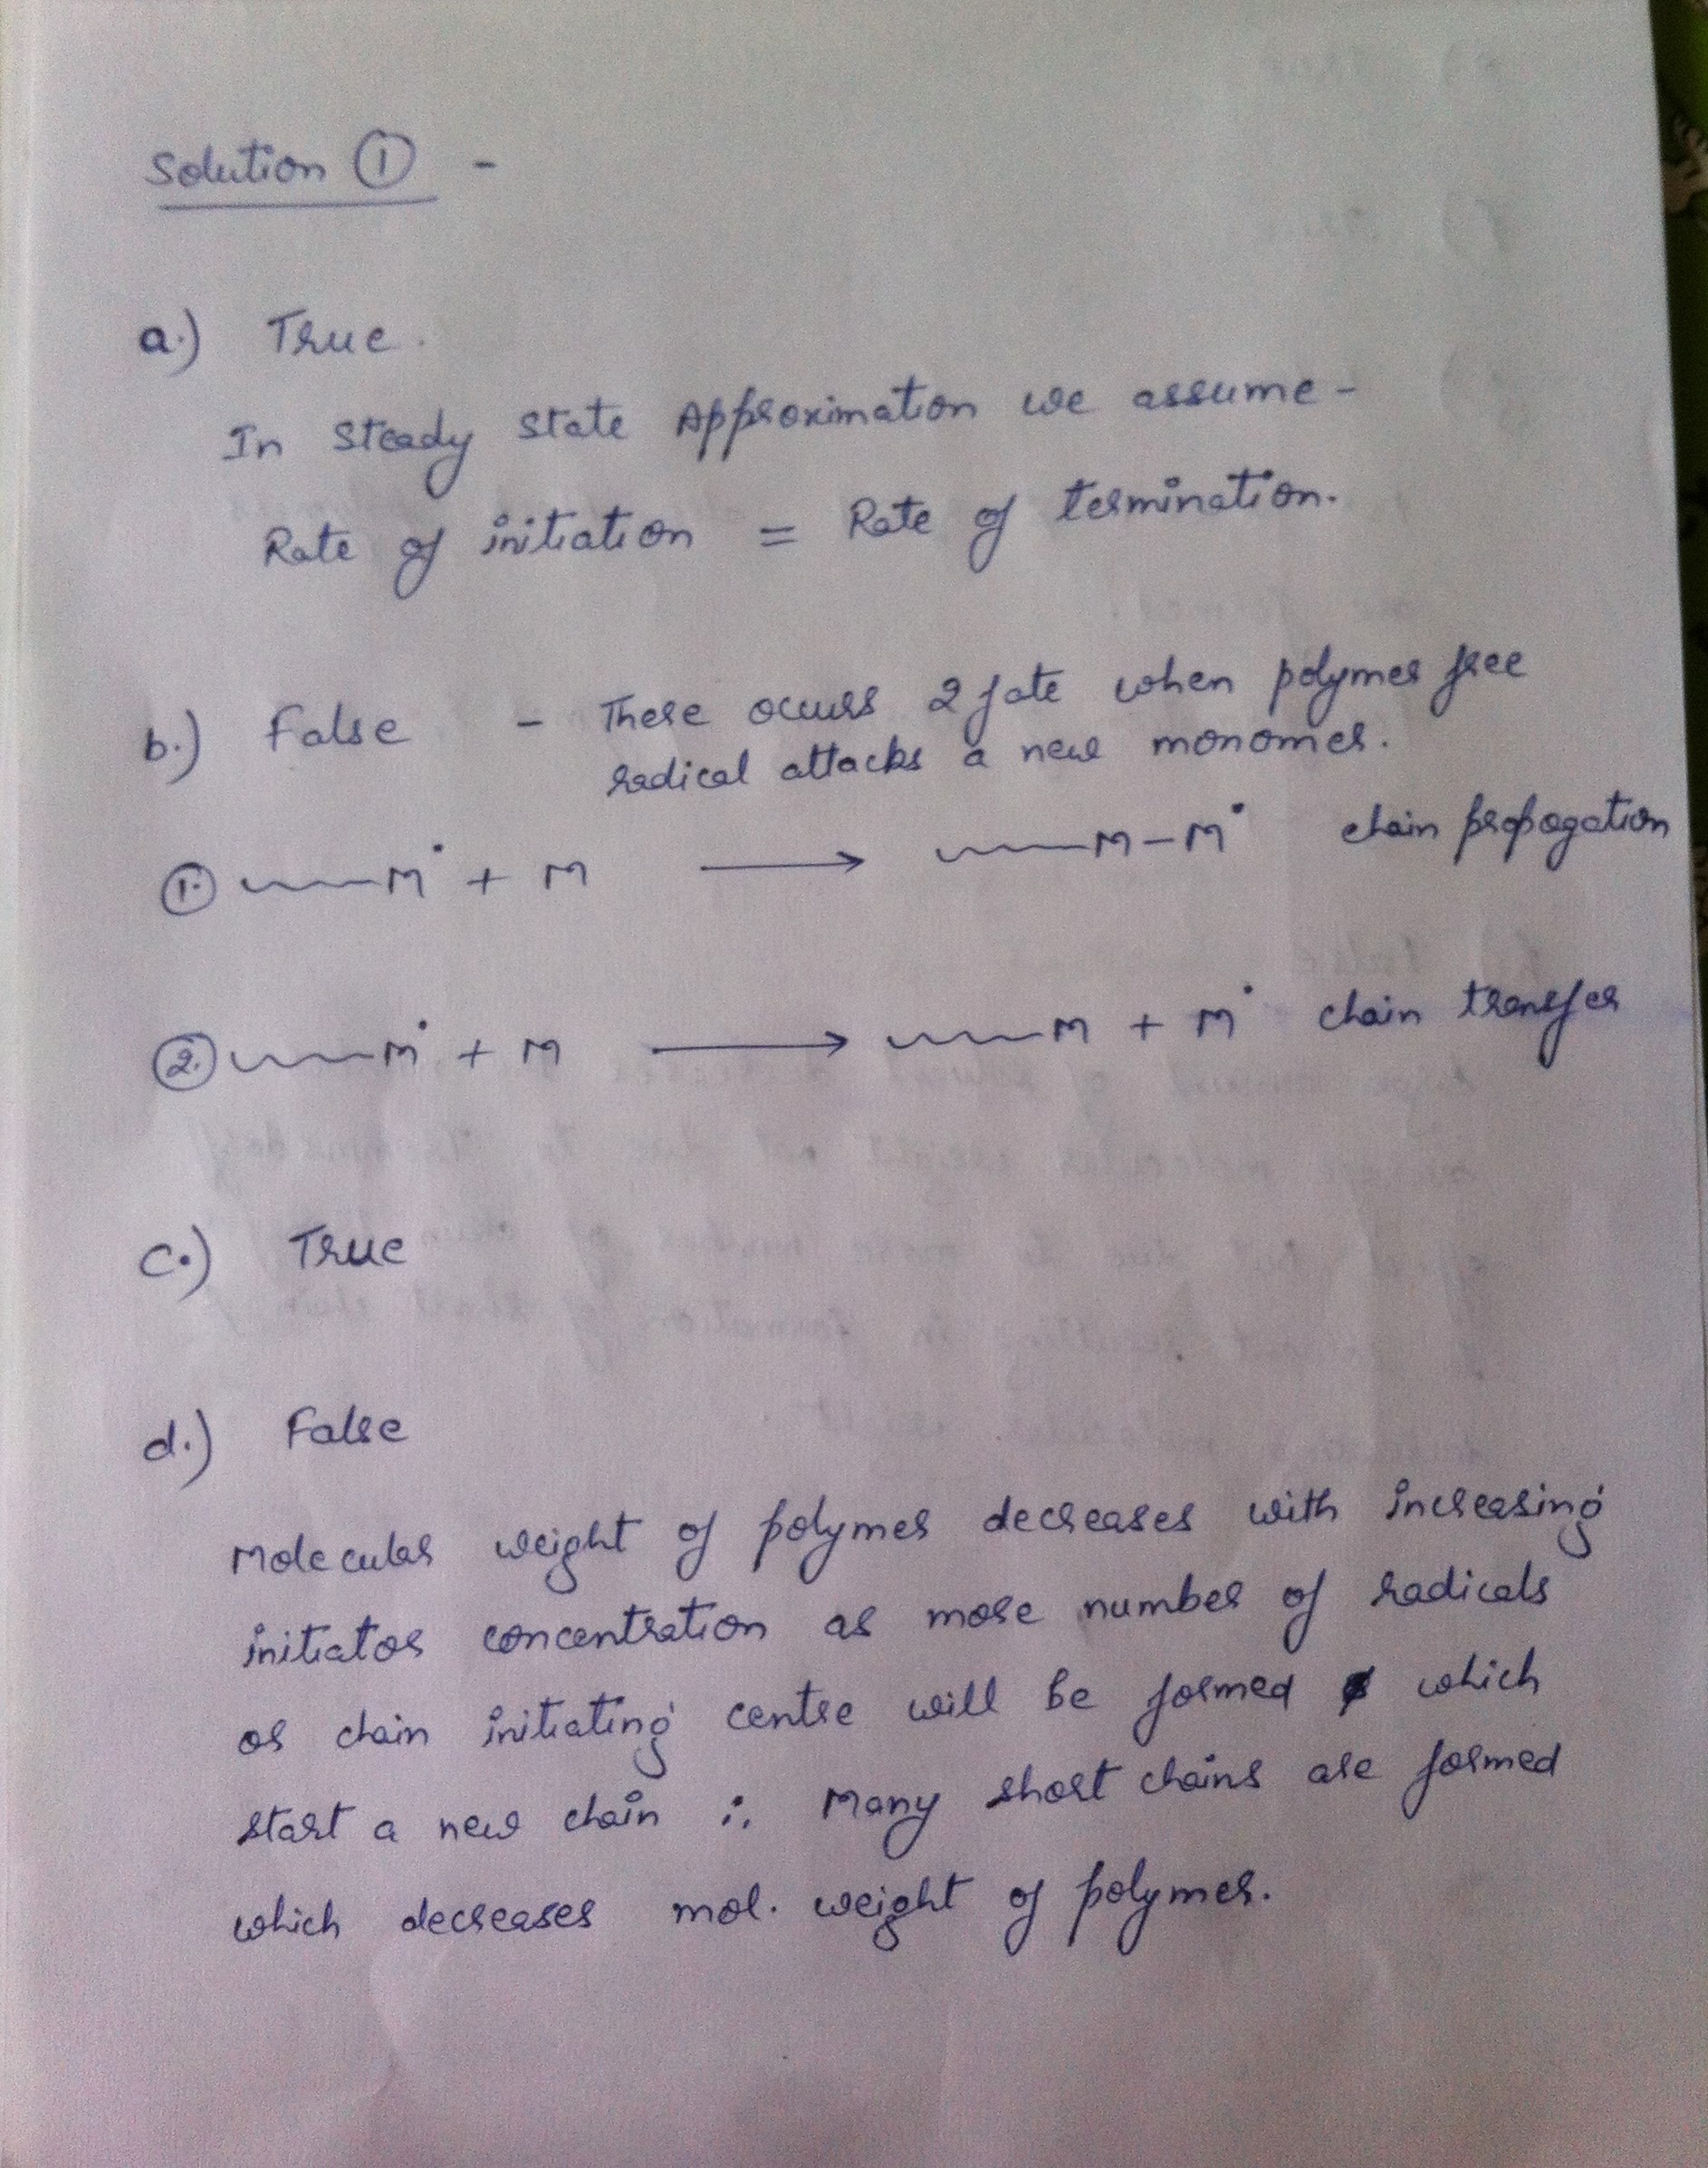 Solution ① -
a.) True.
In steady state Approximation we assume -
Rate of initiation = Rate of termination.
b.) False - There occurs 2 fate when polymer free
radical attacks a new monomer.
①. ~~~M• + M ⟶ ~~~M-M• chain propogation
②. ~~~M• + M ⟶ ~~~M + M• chain transfer
c.) True
d.) False
Molecular weight of polymer decreases with increasing
initiator concentration as more number of radicals
or chain initiating centre will be formed which
start a new chain ∴ Many short chains are formed
which decreases mol. weight of polymer.